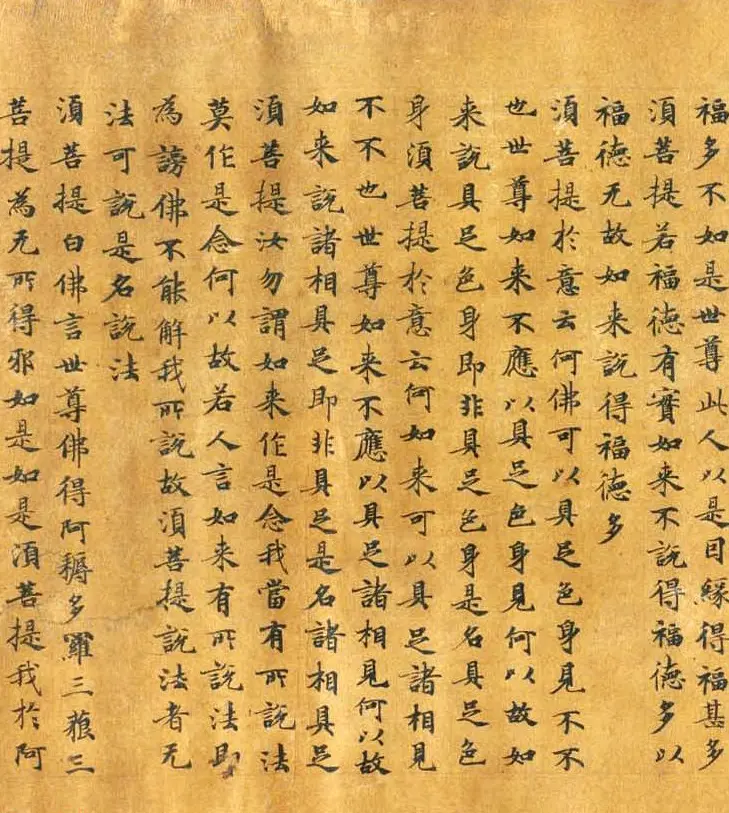 福多不如是世尊此人以是因緣得福甚多
須菩提若福德有實如来不說得福德多以
福德无故如来說得福德多
須菩提於意云何佛可以具足色身見不不
也世尊如来不應以具足色身見何以故如
来說具足色身即非具足色身是名具足色
身須菩提於意云何如来可以具足諸相見
不不也世尊如来不應以具足諸相見何以故
如来說諸相具足即非具足是名諸相具足
須菩提汝勿謂如来作是念我當有所說法
莫作是念何以故若人言如来有所說法即
為謗佛不能解我所說故須菩提說法者无
法可說是名說法
須菩提白佛言世尊佛得阿耨多羅三藐三
菩提為无所得邪如是如是須菩提我於阿